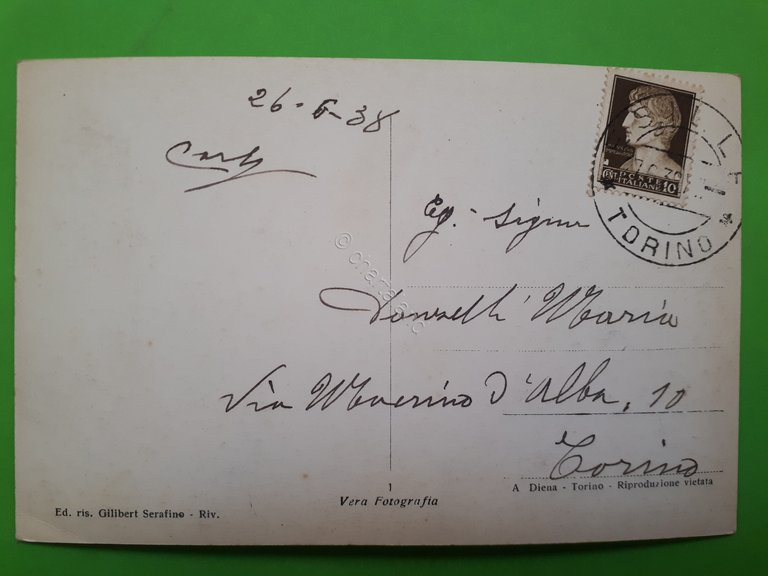 26-6-38
Carlo
POSTE
ITALIANE
CENT. 10
TORINO
Eg. Signa
Donzelli Maria
Via Macrino d'Alba, 10
Torino
A Diena - Torino - Riproduzione vietata
1
Vera Fotografia
Ed. ris. Gilibert Serafino - Riv.
© charta